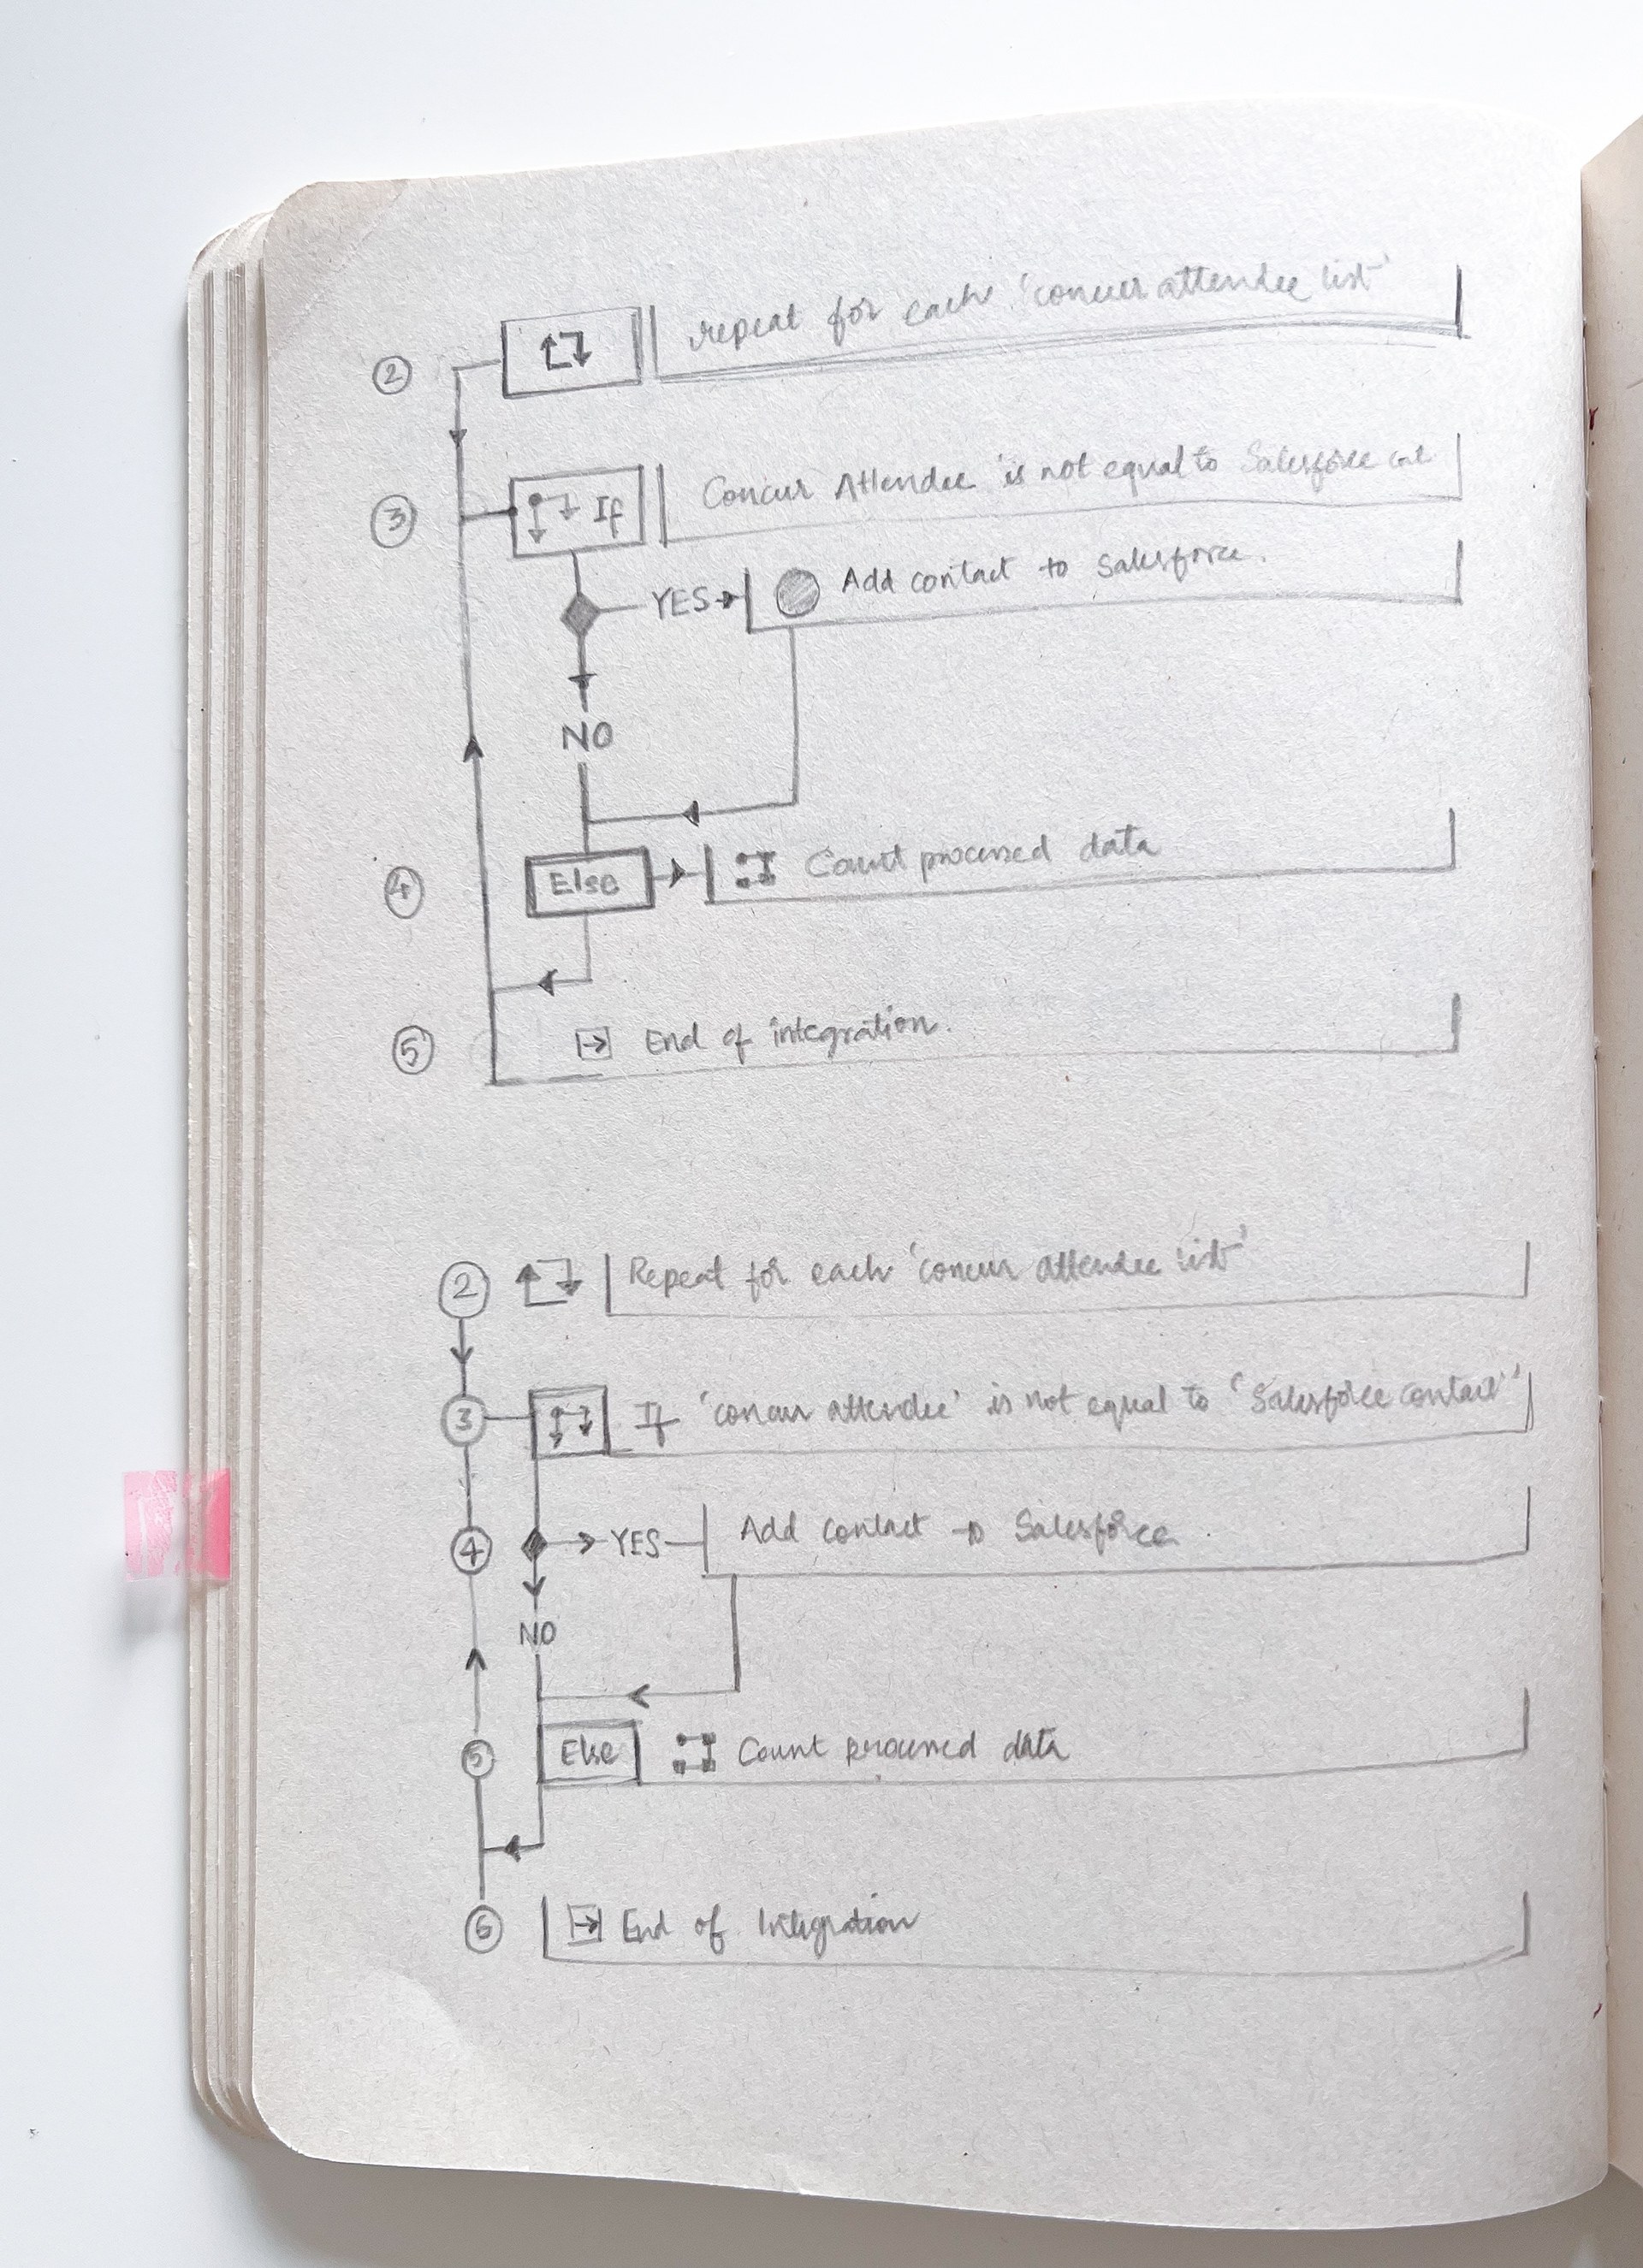 ② repeat for each 'concur attendee list'
③ If Concur Attendee is not equal to Salesforce
YES Add contact to Salesforce.
NO
④ Else Count processed data
⑤ End of integration.
② Repeat for each 'concur attendee list'
③ If 'concur attendee' is not equal to 'Salesforce contact'
④ YES Add contact → Salesforce.
NO
⑤ Else Count processed data
⑥ End of Integration